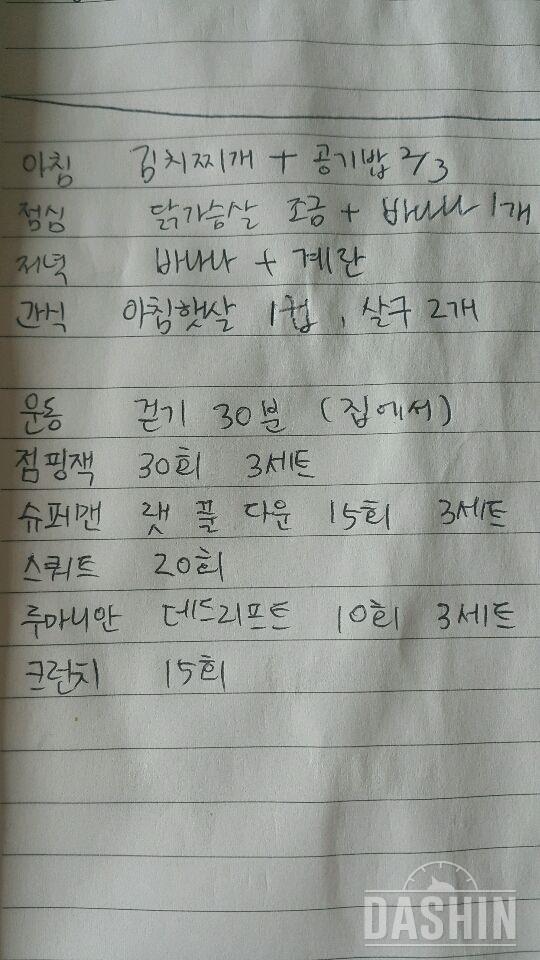 아침 김치찌개 + 공기밥 2/3
점심 닭가슴살 조금 + 바나나 1개
저녁 바나나 + 계란
간식 아침햇살 1컵, 살구 2개
운동 걷기 30분 (집에서)
점핑잭 30회 3세트
슈퍼맨 랫 풀 다운 15회 3세트
스쿼트 20회
루마니안 데드리프트 10회 3세트
크런치 15회
DASHIN